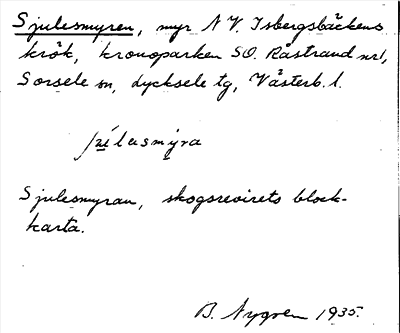 Sjulesmyren, myr N V. Isbergsbäckens
krök, kronoparken SO. Råstrand nr 1,
Sorsele sn, Lycksele tg, Västerb. l.
sjʉ́lasmy̱ra
Sjulesmyran, skogsrevirets block-
karta.
B. Nygren 1935.